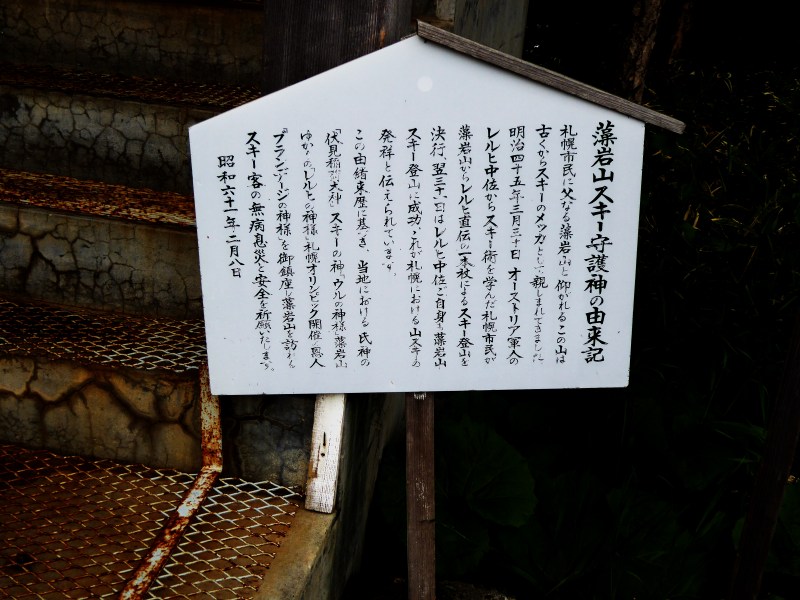 藻岩山スキー守護神の由来記
札幌市民に父なる藻岩山と仰がれるこの山は
古くからスキーのメッカとして親しまれてきました
明治四十五年三月三十日 オーストリア軍人の
レルヒ中佐からスキー術を学んだ札幌市民が
藻岩山からレルヒ直伝の一本杖によるスキー登山を
決行、翌三十一日はレルヒ中佐ご自身も藻岩山
スキー登山に成功、これが札幌における山スキーの
発祥と伝えられています。
この由緒来歴に基づき、当地における氏神の
「伏見稲荷大神」スキーの神「ウルの神様」藻岩山
ゆかりの「レルヒの神様」札幌オリンピック開催の恩人
「ブランデージの神様」を御鎮座し藻岩山を訪れる
スキー客の無病息災と安全を祈願いたします。
昭和六十一年二月八日